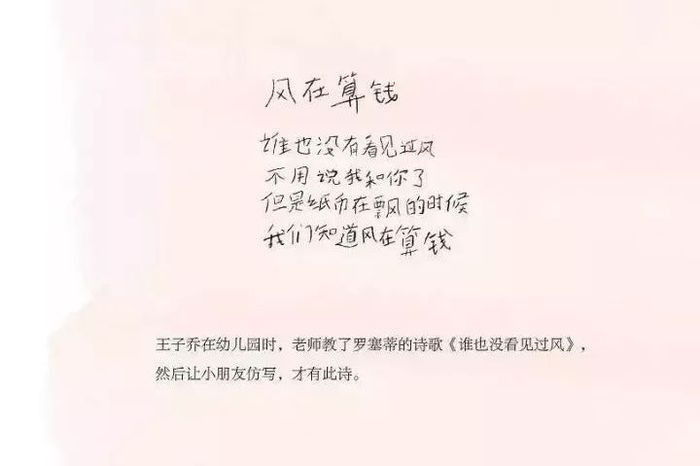 风在算钱
谁也没有看见过风
不用说我和你了
但是纸币在飘的时候
我们知道风在算钱
王子乔在幼儿园时，老师教了罗塞蒂的诗歌《谁也没看见过风》，
然后让小朋友仿写，才有此诗。